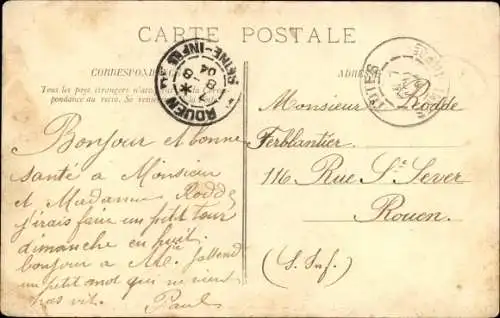 CARTE POSTALE
CORRESPONDANCE
Tous les pays étrangers n'acceptent pas la Corres-
pondance au recto. Se renseigner
ADRESSE
ROUEN
SEINE-INFRE
Monsieur Rodde
Ferblantier
116 Rue St Sever
Rouen.
(S. Inf.)
Bonjour et bonne
santé à Monsieur
et Madame Rodde
j'irais faire un petit tour
dimanche en huit.
bonjour a Mlle j'attend
un petit mot qui ne vient
pas vit.
Paul